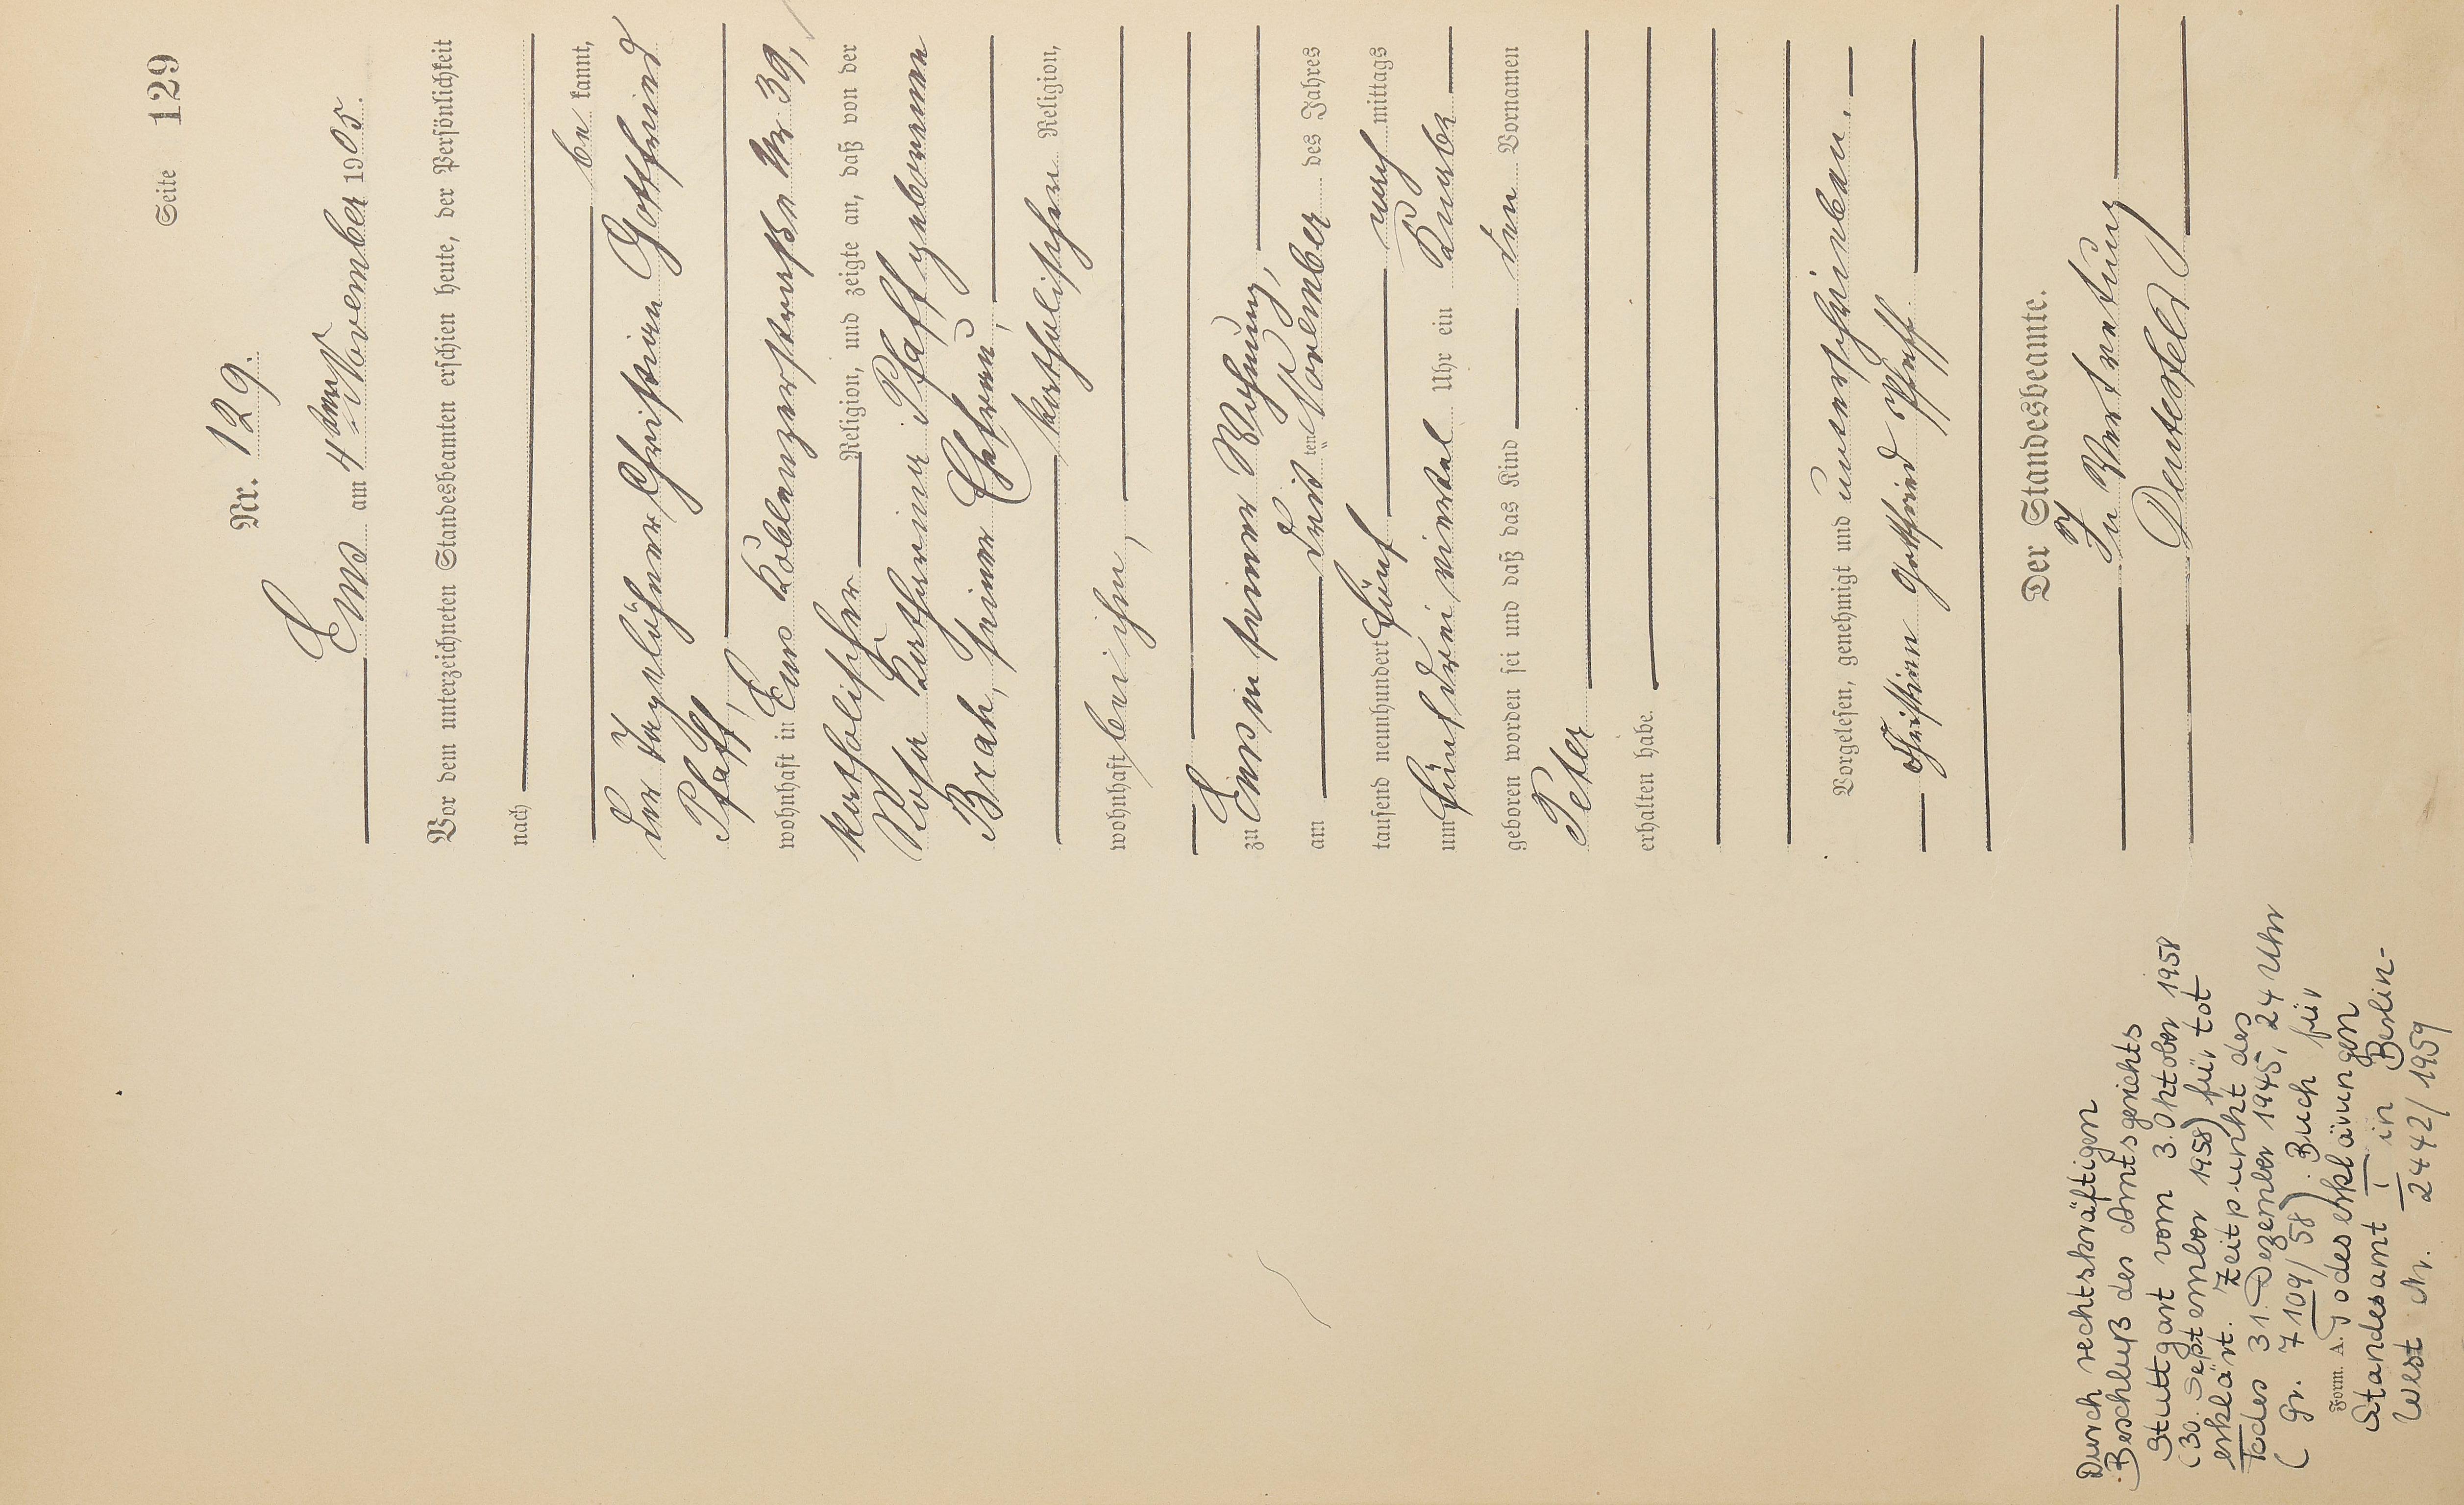 Seite 129
Nr. 129.
Ems am 4ten November 1905.
Vor dem unterzeichneten Standesbeamten erschien heute, der Persönlichkeit
nach
be kannt,
der Tagelöhner Christian Gottfried
Pfaff,
wohnhaft in Ems Koblenzerstraße Nr 39,
katholischer Religion, und zeigte an, daß von der
Rosa Katharina Pfaff geborenen
Brah, seiner Ehefrau,
katholischen Religion,
wohnhaft bei ihm,
zu Ems in seiner Wohnung,
am ten November des Jahres
tausend neunhundert fünf nach mittags
um fünf drei viertel Uhr ein Knabe
geboren worden sei und daß das Kind den Vornamen
Peter
erhalten habe.
Vorgelesen, genehmigt und unterschrieben.
Christian Gottfried Pfaff.
Der Standesbeamte.
In Vertretung
Deutesfeld
Durch rechtskräftigen
Beschluß des Amtsgerichts
Stuttgart vom 3. Oktober 1958
(30. September 1958) für tot
erklärt. Zeitpunkt des
Todes 31. Dezember 1945, 24 Uhr
(Gr. 7109/58). Buch für
Form. A. Todeserklärungen
Standesamt I in Berlin-
West Nr. 2442/1959